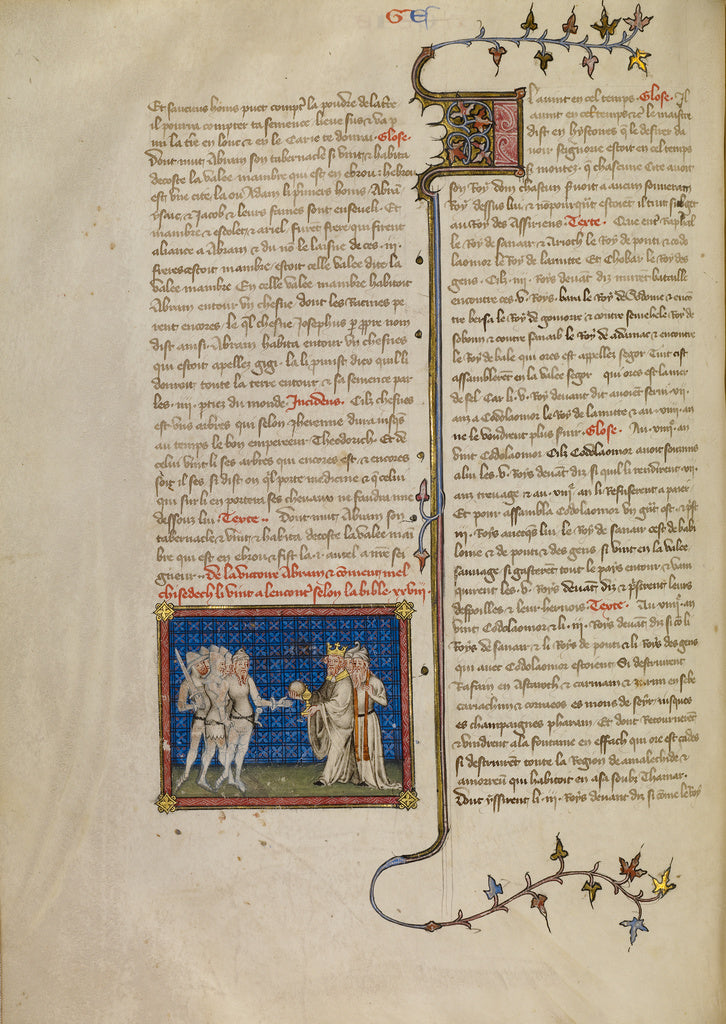 G E
Et saucuns homs puet compter la poudre de la t're
il pourra compter ta semence lieve sus & va p
mi la t're en louc & en le car ie te donrai. Glose.
Dont mut Abram son tabernacle si vint & habita
decoste la valee mambre qui est en ebron & hebron
est une cite la ou Adam li p'miers homs Abra'
ysaac & Jacob & leurs femes sont enseueli. Et
mambre & escolet & anel furet freres qui firent
aliance a Abram & du no' le laisne de ces .iii.
freres estoit mambre estoit celle valee dite la
valee mambre En celle valee mambre habitoit
Abram entour un chesne dont les racines pe
rent encores. le ql' chesne Josephus p' p'pre nom
dist ainsi. Abram habita entour un chesnes
qui estoit apellez gigi. la li p'mist dieu quil li
donroit toute la terre entour & sa semence par
les .iiii. p'ties du monde. Incidens. Cilz chesnes
est uns arbres qui selon Jherome dura iusqs
au temps le bon empereeur Theodorich. Et de
celui vint li ses arbres qui encores est. & encores
soit il ses si dist on ql' porte medicine & q' celui
qui sur li en portera ses chevaux ne fondra mie
dessouz lui. Texte. Dont mut Abram son
tabernacle & vint & habita decoste la valee mam
bre qui est en ebron & fist la .i. autel a n're sei
gneur. De la victoire Abram & coment mel
chisedech li vint a lencontre selon la bible xxviii
Il avint en cel temps. Glose. Il
avint en cel temps & c' le maistre
dist en hystoires q' le desirer da
voir seignorie estoit en cel temps
si montez q' chascune cite avoit
son Roy dom chascun servoit a aucun souverain
Roy dessus lui. & nonpourquat estoient il tuit subget
au Roy des Assiriens. Texte. Que en t' Raphal
le Roy de sanaar & arioch le Roy de ponti & codo
laomor le Roy de lamite Et Thobar le Roy des
gens. Cilz .iiii. Roys deuat diz murent bataille
encontre ces .v. Roys. bara le Roy de Sodome & enco'
tre bersa le Roy de gomorre & contre semebele Roy de
seboim & contre senaab le Roy de adamac & encontre
le Roy de bale qui ores est appellez segor Tuit cist
assamblerent en la valee segor qui ores est la mer
de sel. Car li .v. Roy deuant dit auoient servi .xii.
anz a Codolaomor le Roy de lamite & au .xiii. an
ne le voudrent plus servir. Glose. Au .xiiii. an
vint Codolaomor Cilz Codolaomor auoit sousmis
a lui les .v. Roys deuat diz si quil li rendirent .xii.
anz treuage & au .xiii. an li refuserent a paier
Et pour assambla Codolaomor un g't ost. & p'st
.iii. Roys auecqs lui. le Roy de sanaar cest de babi
loine & de ponti & des gens si vint en la valee
sauuage si gasterent tout le pays entour & vain
quirent les .v. Roys deuant diz & p'strent leurs
despoilles & leur hernois Texte. Au .xiiii. an
vint Codolaomor & li .iii. Roys deuat diz si co' li
Roys de sanaar & li Roys de ponti & li Roys des gens
qui auec Codolaomor estoient Si destruirent
Rafaim en Astaroth & carnaim & zuzim en sebe
cariachim & correos es mons de seyr iusques
es champaignes pharam. Et dont retournerent
& vindrent a la fontaine en effach qui ore est cades
si destruirent toute la region de amalechide &
amorreu qui habitoit en asa soubz Thamar.
Dont yssirent li .iii. Roys deuant diz si come le Roy